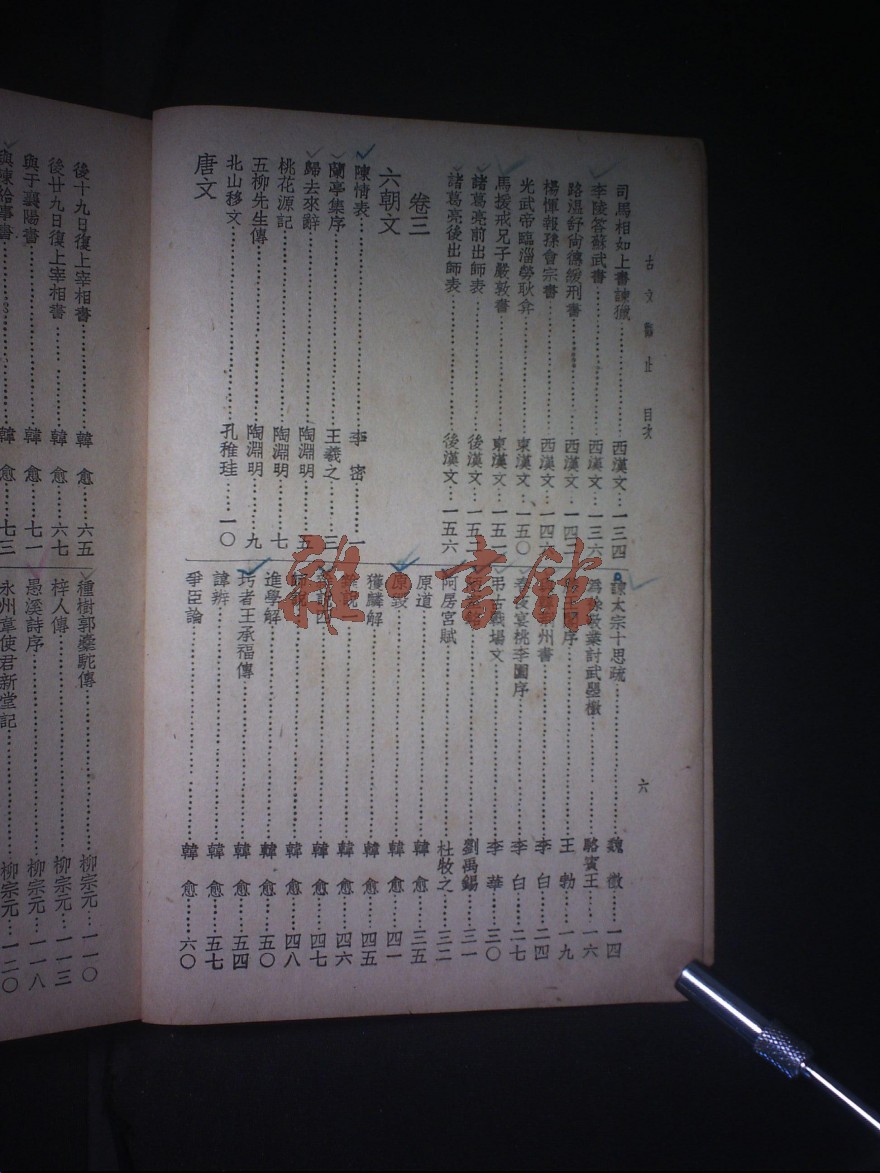 古文觀止 目次
六
司馬相如上書諫獵……西漢文…一三四
李陵答蘇武書……西漢文…一三六
路溫舒尙德緩刑書……西漢文…一四二
楊惲報孫會宗書……西漢文…一四六
光武帝臨淄勞耿弇……東漢文…一五〇
馬援戒兄子嚴敦書……東漢文…一五一
諸葛亮前出師表……後漢文…一五二
諸葛亮後出師表……後漢文…一五六
卷三
六朝文
陳情表……李密……一
蘭亭集序……王羲之……三
歸去來辭……陶淵明……五
桃花源記……陶淵明……七
五柳先生傳……陶淵明……九
北山移文……孔稚珪……一〇
唐文
諫太宗十思疏……魏徵……一四
爲徐敬業討武曌檄……駱賓王…一六
序……王勃……一九
州書……李白……二四
春夜宴桃李園序……李白……二七
弔古戰場文……李華……三〇
劉禹錫……三一
阿房宮賦……杜牧之……三二
原道……韓愈……三五
原毀……韓愈……四一
獲麟解……韓愈……四五
雜說一……韓愈……四六
雜說四……韓愈……四七
師說……韓愈……四八
進學解……韓愈……五〇
圬者王承福傳……韓愈……五四
諱辨……韓愈……五七
爭臣論……韓愈……六〇
後十九日復上宰相書……韓愈…六五
後廿九日復上宰相書……韓愈…六七
與于襄陽書……韓愈…七一
與陳給事書……韓愈…七三
種樹郭橐駝傳……柳宗元…一一〇
梓人傳……柳宗元…一一三
愚溪詩序……柳宗元…一一八
永州韋使君新堂記……柳宗元…一二〇
雜·書館